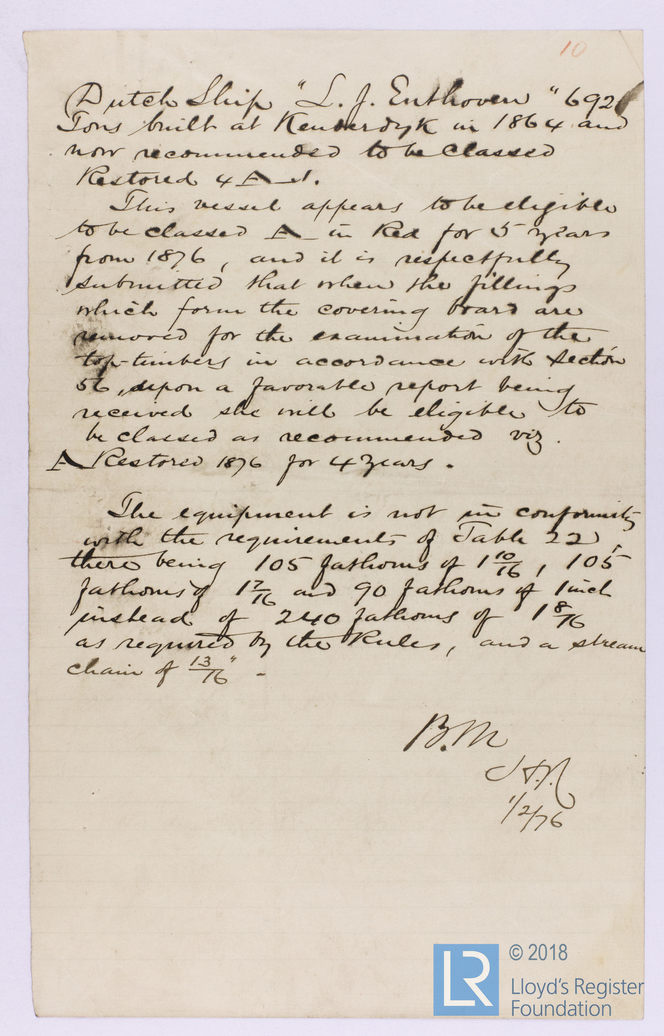 10
Dutch Ship "L. J. Enthoven" 692
Tons built at Kenderdyk in 1864 and
now recommended to be classed
Restored 4 A 1.
This vessel appears to be eligible
to be classed A in Red for 5 years
from 1876, and it is respectfully
submitted that when the fillings
which form the covering board are
removed for the examination of the
top-timbers in accordance with Section
56, upon a favorable report being
received she will be eligible to
be classed as recommended viz.
A Restored 1876 for 4 years.
The equipment is not in conformity
with the requirements of Table 22,
there being 105 fathoms of 1 10/16, 105
fathoms of 1 7/16 and 90 fathoms of 1 inch
instead of 240 fathoms of 1 8/16
as required by the Rules, and a stream
chain of 13/16" -
B.M
1/2/76
LR © 2018
Lloyd's Register
Foundation